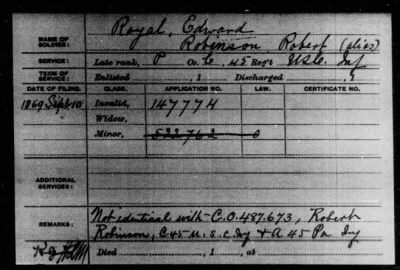 NAME OF SOLDIER: Royal, Edward
Robinson Robert (alias)
SERVICE: Late rank, P Co. C, 45 Reg't U.S.C. Inf
TERM OF SERVICE: Enlisted , 1 Discharged , 1
DATE OF FILING. CLASS. APPLICATION NO. LAW. CERTIFICATE NO.
1869 Sept 10 Invalid, 147774
Widow,
Minor, 522762
ADDITIONAL SERVICES:
REMARKS: Not identical with C.O. 487.673, Robert
Robinson, C 45 U.S.C. Inf & A 45 Pa Inf
Died , 1 , at